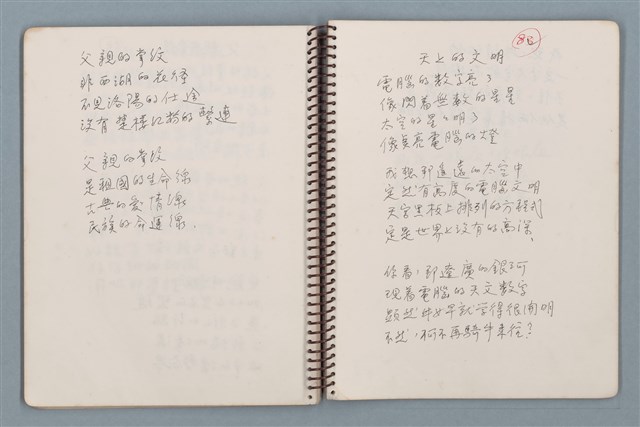 父親的掌紋
非西湖的花徑
不見洛陽的仕途
沒有楚樓紅粉的豔遇
父親的掌紋
是祖國的生命線
古典的愛情線
民族的命運線.
天上的文明
電腦的數字亮了
像閃著無數的星星
太空的星星明了
像莫亮電腦的燈
我想那遙遠的太空中
定然有高度的電腦文明
天宮黑板上排列的方程式
定是世界上沒有的高深。
你看,那遼廣的銀河
現著電腦的天文數字
顯然牛女早就學得很開明
不然,何不再騎牛來往?